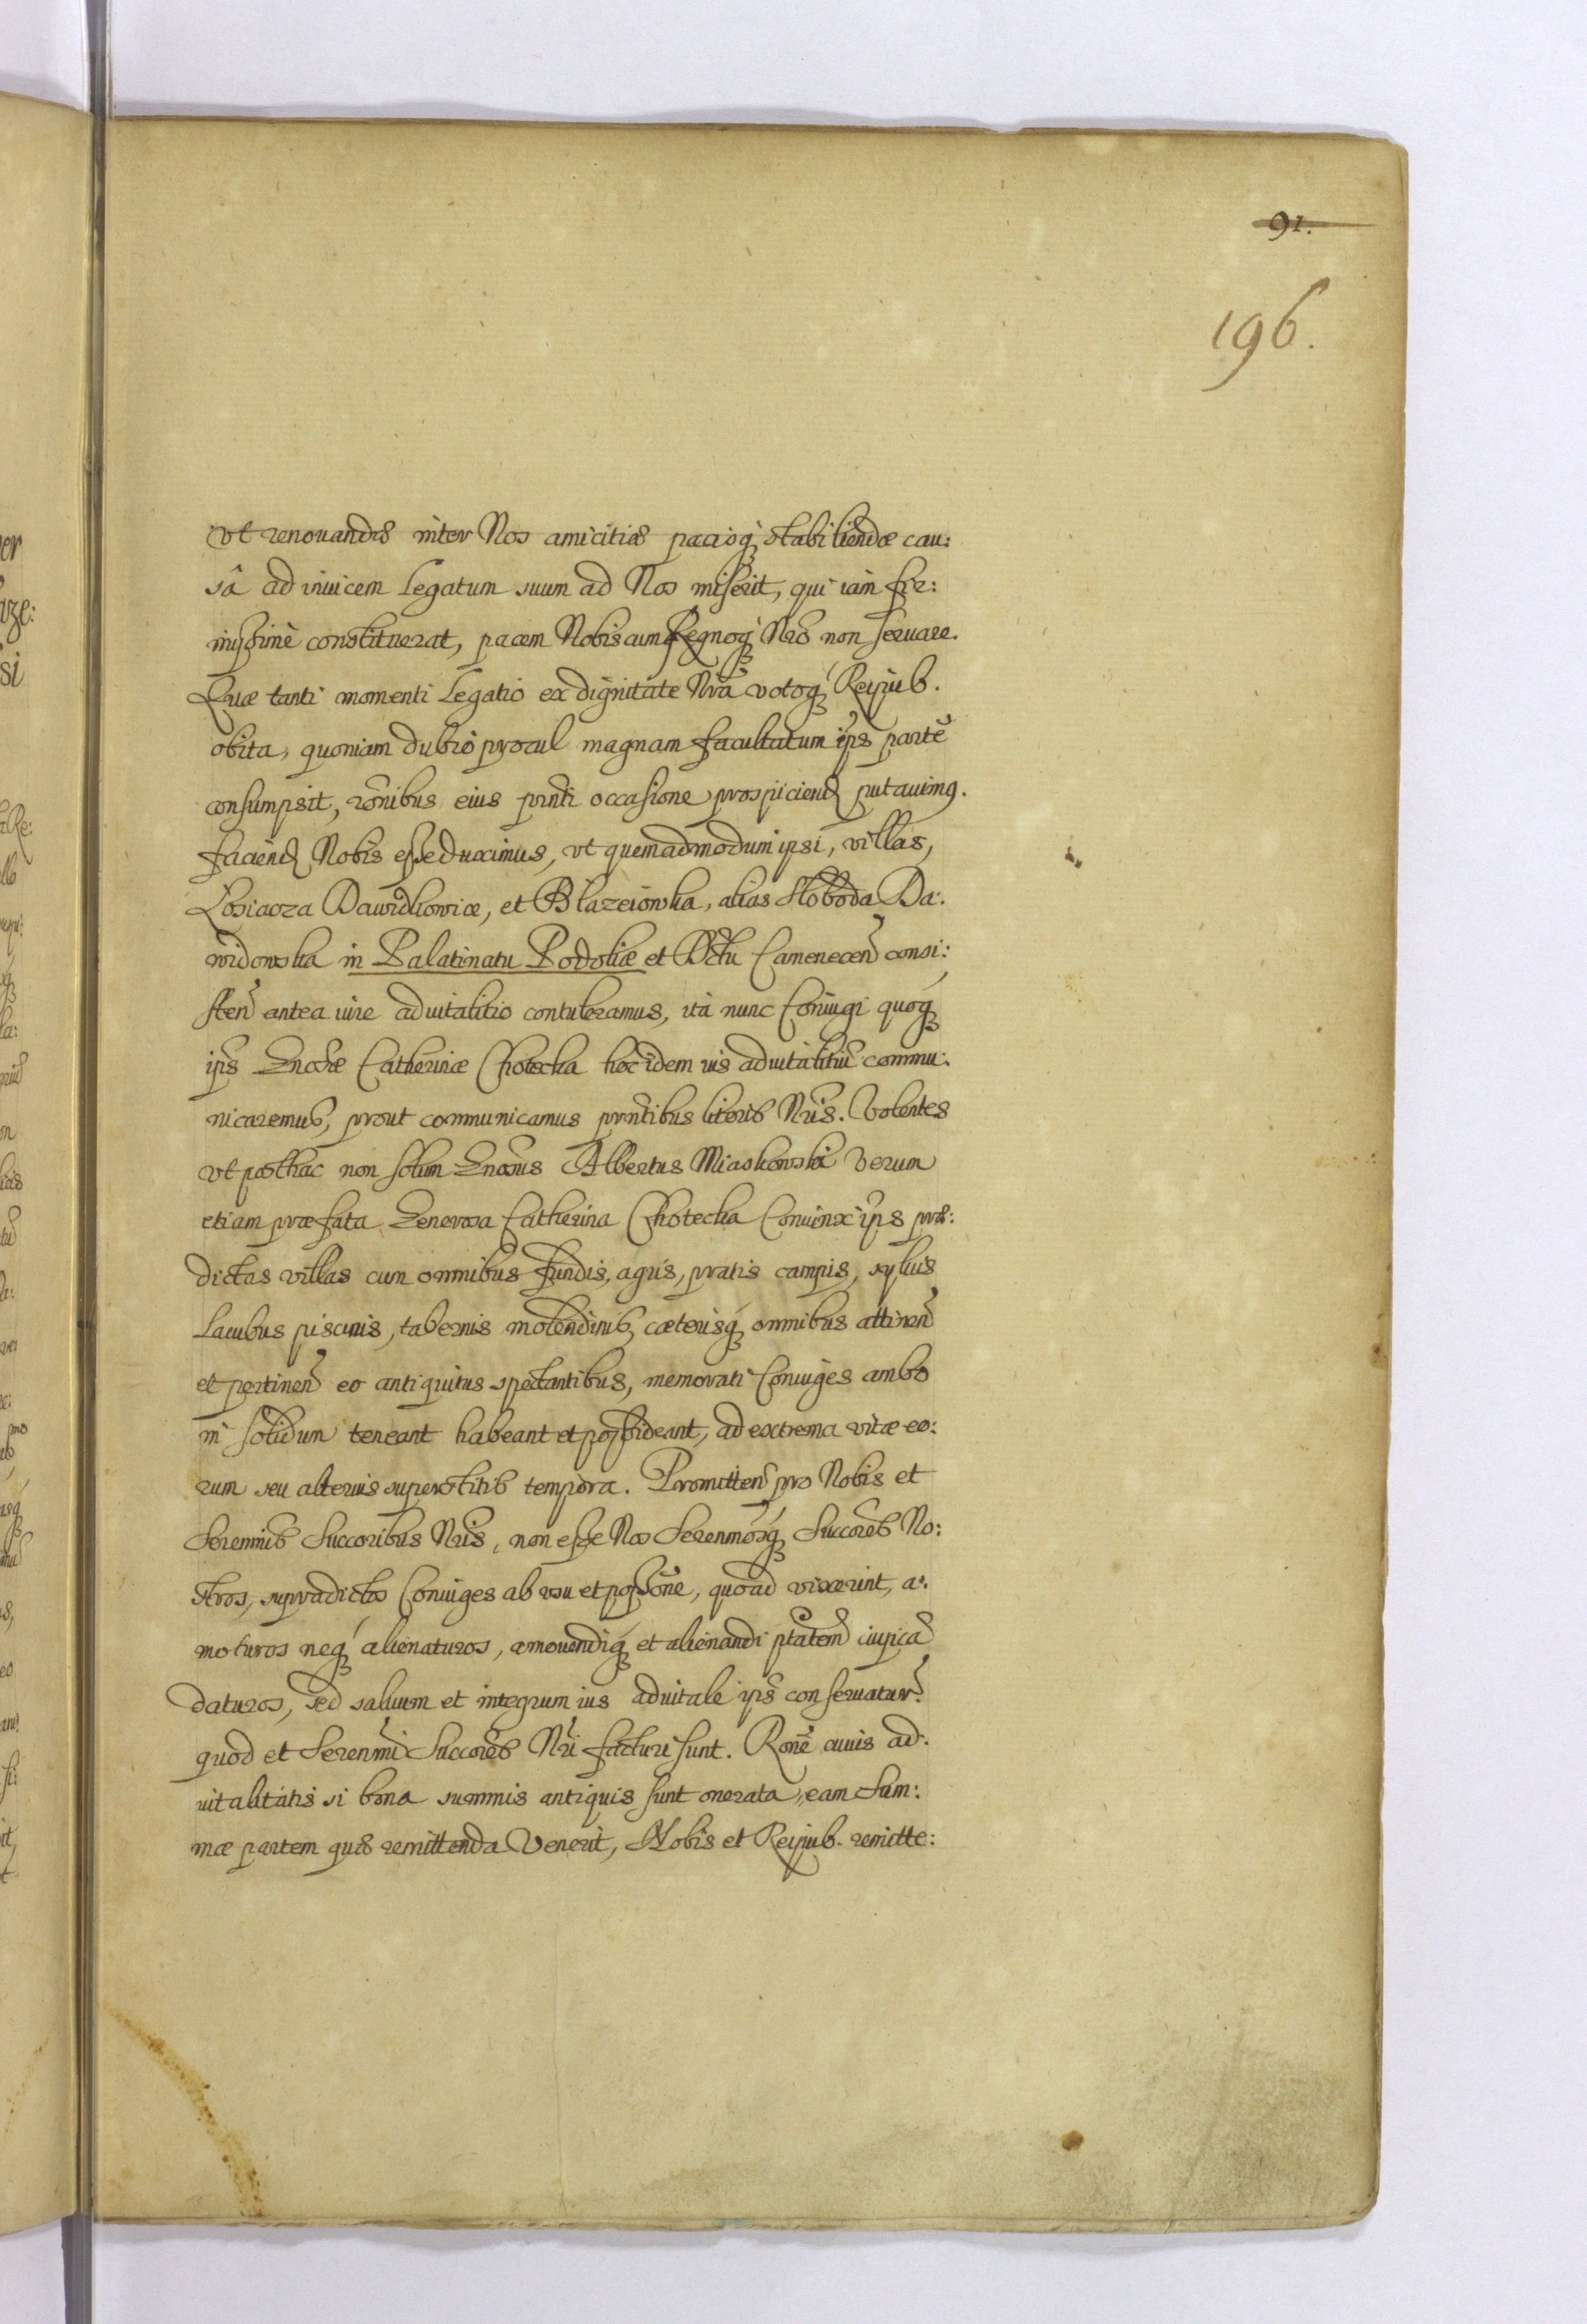 91.
196.
vt renouandæ inter Nos amicitiæ pacisq́ stabiliendæ cau:
sâ ad inuicem Legatum suum ad Nos miserit, qui iam fir:
missimè constituerat, pacem Nobiscum Regnoq́ Nrõ non seruare.
Quæ tanti momenti Legatio ex dignitate Nrã votoq́ Reipub.
obita, quoniam dubio procul magnam facultatum ips̃ partẽ
consumpsit, rõnibus eius prñti occasione prospiciend putauimus.
faciend Nobis esse duximus, vt quemadmodum ipsi, villas,
Dawidkowice, et Blazeiowka, alias Sloboda Da:
widowska in Palatinatu Podoliæ et Dsctu Camenecen̄ consi:
sten̄ antea iure aduitalitio contuleramus, ità nunc Coniugi quoq́
ips̃ Gnosæ Catherinæ Chotecka hoc idem ius aduitalitiũ commu:
nicaremus, prout communicamus prñtibus literis Nris̃. Volentes
vt posthac non solum Gnosus Albertus Miaskowski Verum
etiam præfata Generosa Catherina Chotecka Coniunx ips̃ præ:
dictas villas cum omnibus fundis, agris, pratis campis, syluis
Lacubus piscinis, tabernis molendinis, cæterisq́ omnibus attinen̄
et pertinen̄ eo antiquitus spectantibus, memorati Coniuges ambo
in solidum teneant habeant et possideant, ad extrema vitæ eo:
rum seu alterius superstitis tempora. Promitten̄ pro Nobis et
Serenmis Succoribus Nris̃, non esse Nos Serenmosq́ Succores No:
stros, supradictos Coniuges ab vsu et possõne, quoad vixerint, a:
moturos neq́ alienaturos, amouendiq́ et alienandi ptatem̃ cuipiã
daturos, sed saluum et integrum ius aduitale ips̃ conseruatur̃.
quod et Serenmi Succores Nri̇̃ facturi sunt. Ronẽ cuius ad:
uitalitatis si bona summis antiquis sunt onerata, eam Sum:
mæ partem quæ remittenda Venerit, Nobis et Reipub. remitte: